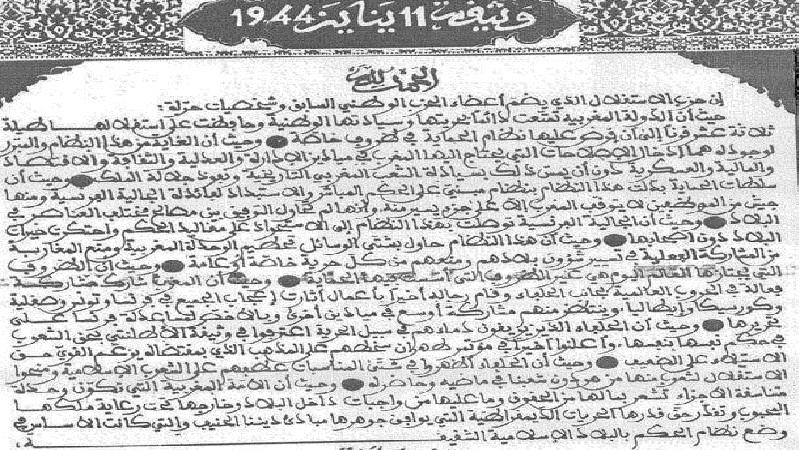 وثيقة 11 يناير 1944
الحمد لله
إن حزب الاستقلال الذي يضم أعضاء الحزب الوطني السابق وشخصيات حرة:
حيث أن الدولة المغربية تمتعت دائما بحريتها وسيادتها الوطنية وحافظت على استقلالها طيلة
ثلاثة عشر قرنا إلى أن فرض عليها نظام الحماية في ظروف خاصة ● وحيث أن الغاية من هذا النظام والمبرر
لوجوده هما إدخال الإصلاحات التي يحتاج إليها المغرب في ميادين الإدارة والعدلية والثقافة والاقتصاد
والمالية والعسكرية دون أن يمس ذلك بسيادة الشعب المغربي التاريخية ونفوذ جلالة الملك ● وحيث أن
سلطات الحماية بدلت هذا النظام بنظام مبني على الحكم المباشر والاستبداد لفائدة الجالية الفرنسية ومنها
جيش من الموظفين لا يتوقف المغرب إلا على جزء يسير منه وأنها لم تحاول التوفيق بين مصالح مختلف العناصر في
البلاد ● وحيث أن الجالية الفرنسية توصلت بهذا النظام إلى الاستحواذ على مقاليد الحكم واحتكرت خيرات
البلاد دون أصحابها ● وحيث أن هذا النظام حاول بشتى الوسائل تحطيم الوحدة المغربية ومنع المغاربة
من المشاركة الفعلية في تسيير شؤون بلادهم ومنعهم من كل حرية خاصة أو عامة ● وحيث أن الظروف
التي يجتازها العالم اليوم هي غير الظروف التي أسست فيها الحماية ● وحيث أن المغرب شارك مشاركة
فعالة في الحروب العالمية بجانب الحلفاء وقام رجاله أخيرا بأعمال أثارت إعجاب الجميع في فرنسا وتونس وصقلية
وكورسيكا وإيطاليا، وينتظر منهم مشاركة أوسع في ميادين أخرى وبالأخص لمساعدة فرنسا على
تحريرها ● وحيث أن الحلفاء الذين يريقون دماءهم في سبيل الحرية اعترفوا في وثيقة الأطلنتي بحق الشعوب
في حكم نفسها بنفسها، وأعلنوا أخيرا في مؤتمر طهران سخطهم على المذهب الذي بمقتضاه يزعم القوي حق
الاستيلاء على الضعيف ● وحيث أن الحلفاء أظهروا في شتى المناسبات عطفهم على الشعوب الإسلامية ومنحوا
الاستقلال لشعوب منها من هو دون شعبنا في ماضيه وحاضره ● وحيث أن الأمة المغربية التي تكون وحدة
متناسقة الأجزاء تشعر بما لها من الحقوق وما عليها من واجبات داخل البلاد وخارجها تحت رعاية ملكها
المحبوب وتقدر حق قدرها الحريات الديمقراطية التي يوافق جوهرها مبادئ ديننا الحنيف والتي كانت الأساس في
وضع نظام الحكم بالبلاد الإسلامية الشقيقة